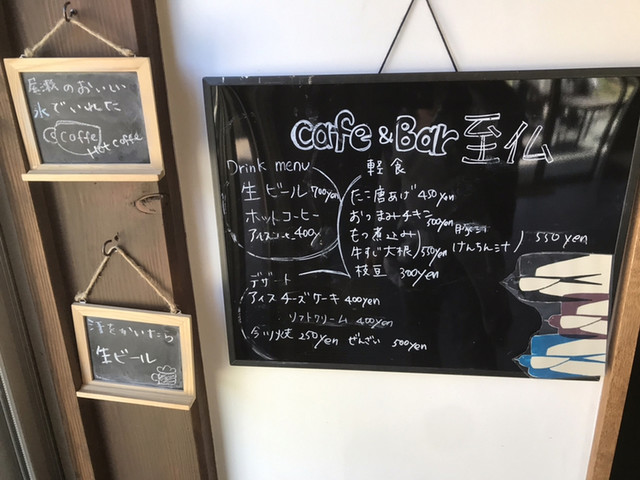 尾瀬のおいしい
水でいれた
Coffe
Hot coffe
汗をかいたら
生ビール
cafe & Bar 至仏
Drink menu
生ビール 700yen
ホットコーヒー
アイスコーヒー 400y
軽食
たこ唐あげ 450yen
おつまみチキン 500yen
もつ煮込み
牛すじ大根 550yen
枝豆 300yen
豚汁
けんちん汁 550yen
デザート
アイスチーズケーキ 400yen
ソフトクリーム 400yen
今川焼 250yen ぜんざい 500yen